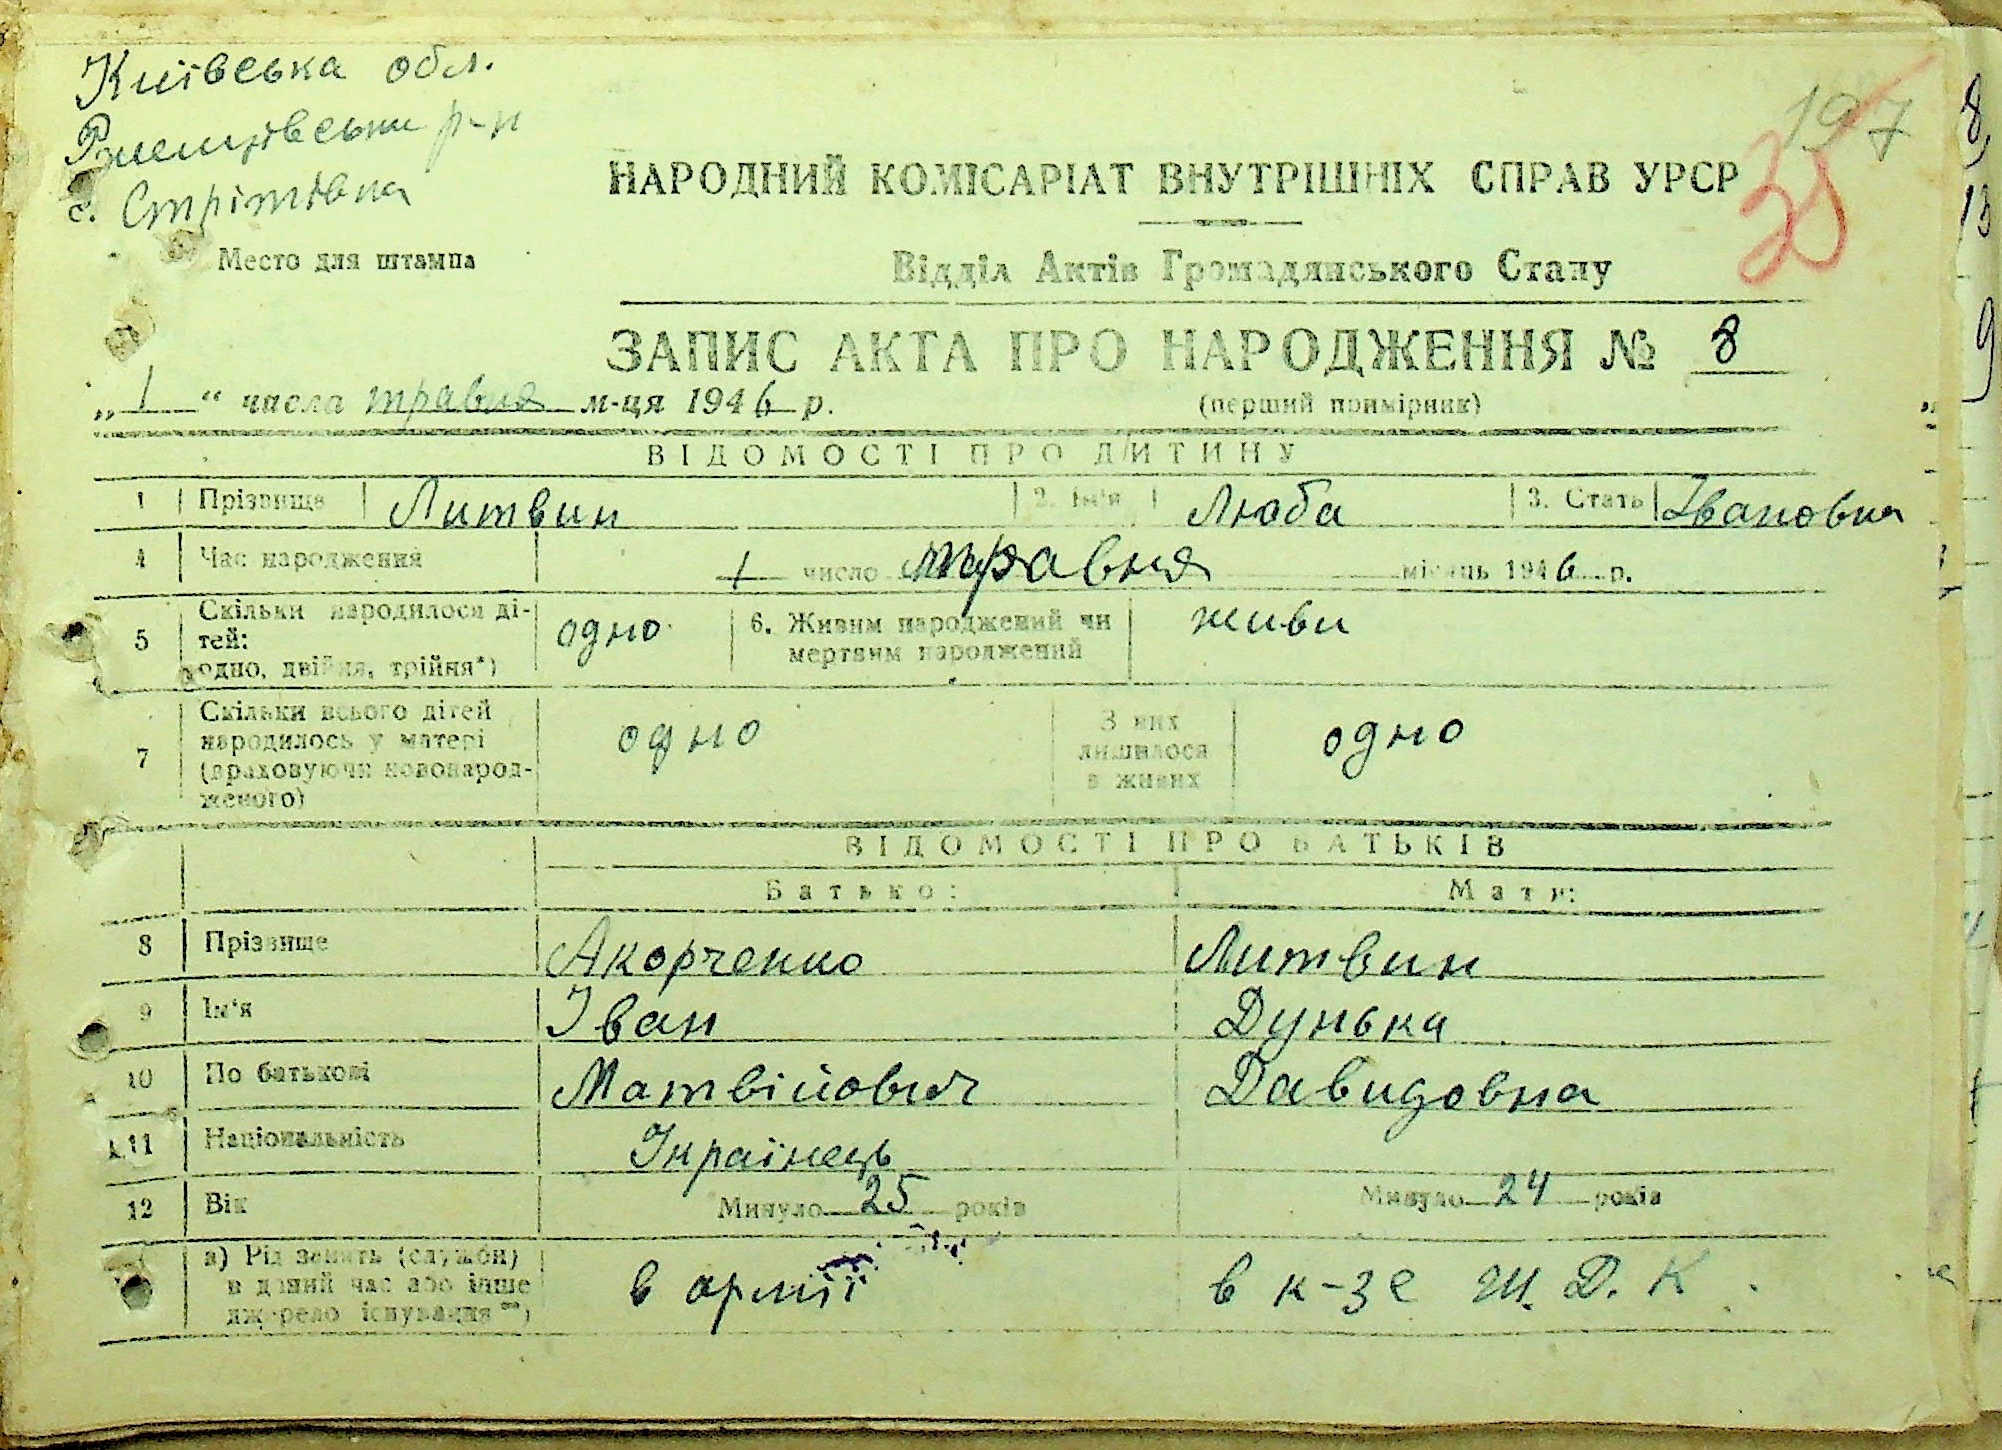 Київська обл.
Ржищівськи р-н
с. Стрітівка
197
38
НАРОДНИЙ КОМІСАРІАТ ВНУТРІШНІХ СПРАВ УРСР
Место для штампа
Відділ Актів Громадянського Стану
ЗАПИС АКТА ПРО НАРОДЖЕННЯ № 8
„ 1 “ числа травня м-ця 1946 р.
(перший примірник)
ВІДОМОСТІ ПРО ДИТИНУ
1 Прізвище Литвин 2. Ім'я Люба 3. Стать Івановна
4 Час народження 1 число травня місяць 1946 р.
5 Скільки народилося ді-
тей:
одно, двійня, трійня*)
одно
6. Живим народжений чи
мертвим народжений
живи
7 Скільки всього дітей
народилось у матері
(враховуючи новонарод-
женого)
одно
З них
лишилося
в живих
одно
ВІДОМОСТІ ПРО БАТЬКІВ
Батько: Мати:
8 Прізвище Акорченко Литвин
9 Ім'я Іван Дунька
10 По батькові Матвійович Давидовна
11 Національність Українець
12 Вік Минуло 25 років Минуло 24 років
а) Рід занять (служби)
в даний час або інше
джерело існування**)
в армії
в к-зе Ш. Д. К.